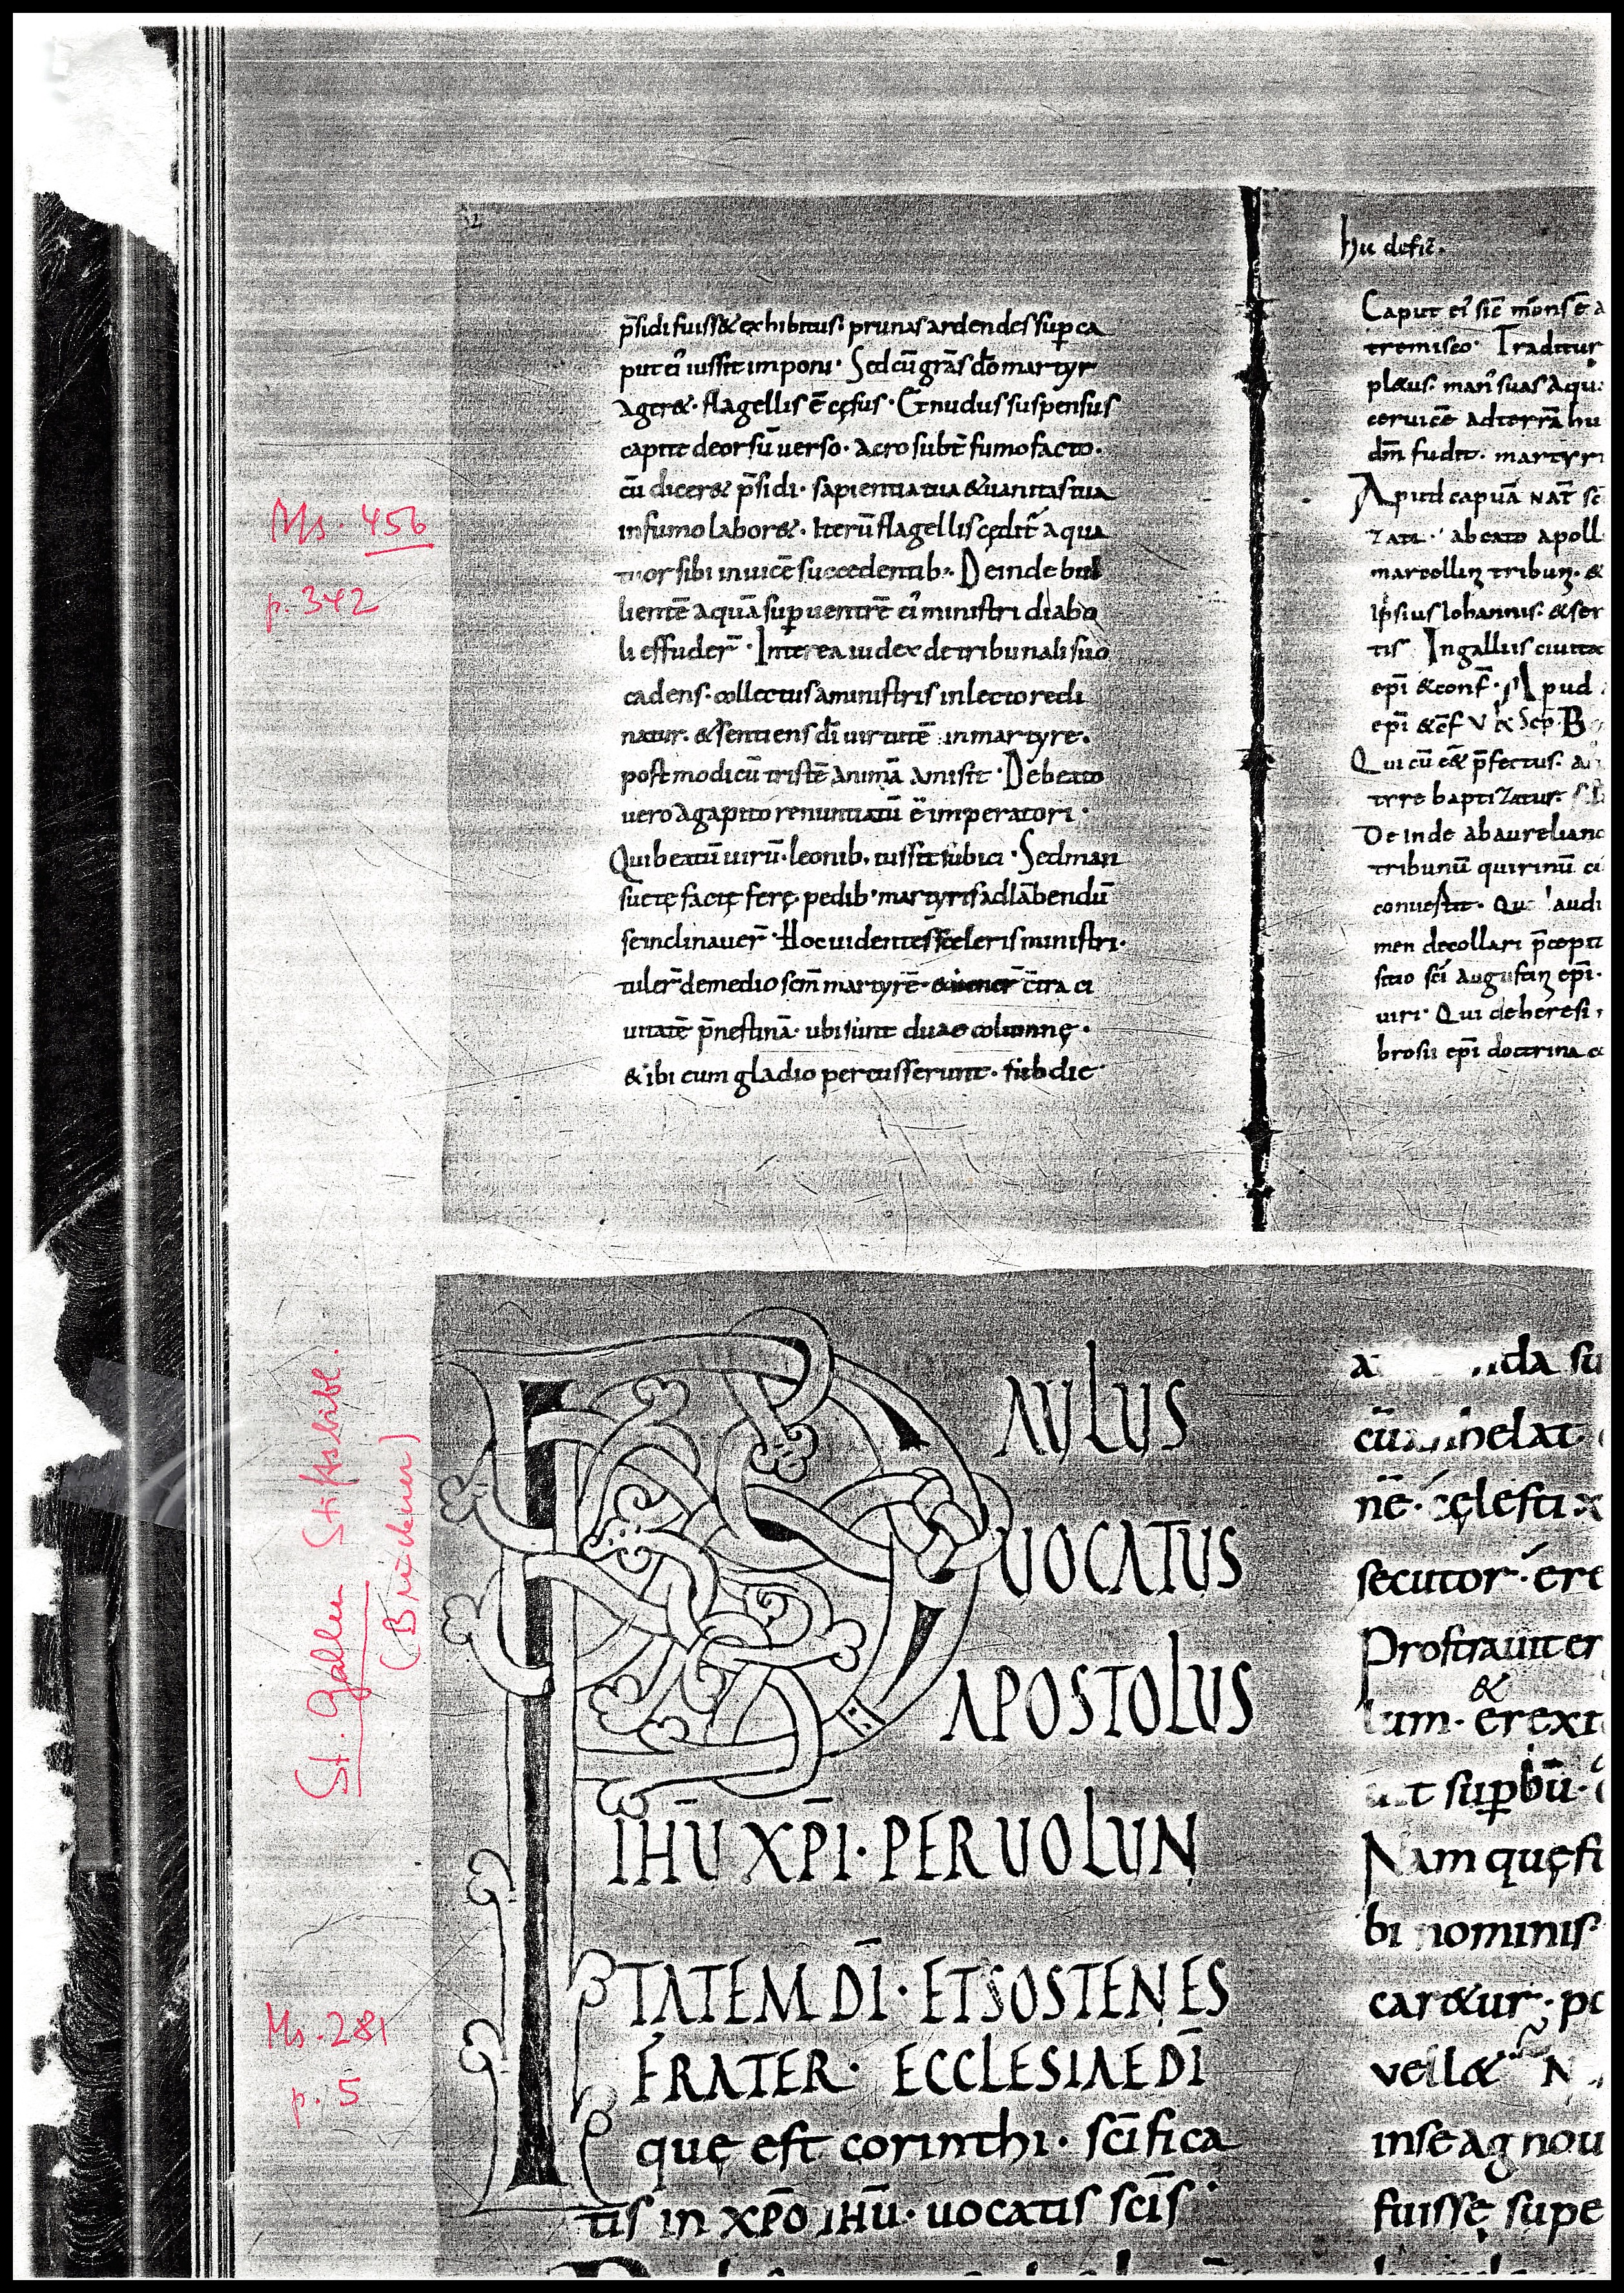 Ms. 456
p. 342
p̄sidi fuiss& exhibitus. prunas ardendes sup ca
put ei' iussit imponi. Sed cū grās dō martyr
ager&. flagellis ē cęsus. Et nudus suspensus
capite deorsū uerso. acro subt̄ fumo facto.
cū dicer& p̄sidi. sapientia tua & uanitas tua
in fumo labor&. Iterū flagellis cędit̄ a qua
tuor sibi inuicē succedentib:. Deinde bul
lientē aquā sup uentrē ei' ministri diabo
li effuder̄. Interea iudex de tribunali suo
cadens. collectus a ministris in lecto recli
natur. & sentiens dī uirtutē in martyre.
post modicū tristē animā amisit. De beato
uero agapito renuntiatū ē imperatori.
Qui beatū uirū. leonib. iussit subici. Sed man
suetę factę ferę. pedib' martyris ad lābendū
se inclinauer̄. Hoc uidentes sceleris ministri.
tuler̄ de medio scm̄ martyrē. cīra ci
uitatē p̄nestinā. ubi sunt duae columnę.
& ibi cum gladio percusserunt. sub die
hu defic̄.
Caput ei' sic̄ mōns ē a
tremisco. Traditur
man' suas aqu
ceruicē ad terrā hu
dm̄ fudit. martyri
Apud capuā NAT̄ sc
zati. ab eato apoll
marcellin tribun. &
ipsius Iohannis. & ser
tis Ingalliis ciuitat
epī & conf. Apud
epī & cf̄ V
Qui cū e& p̄fectus. a
trre baptizatur.
De inde ab aureliano
tribunū quirinū ci
conuestit. audi
men decollari p̄cepit
scio scī augustin epī.
uiri. Qui de heresi
brosii epī doctrina
St. Gallen Stiftsbibl.
(Bruckner)
Ms. 281
p. 5
PAULUS
UOCATUS
APOSTOLUS
IHŪ XPĪ. PER UOLUN
TATEM DĪ. ET SOSTENES
FRATER. ECCLESIAE DĪ
quę est corinthi. scīfica
tis in XPŌ IHŪ. uocatis scīs
da su
cū helat
nē. cęlesti x
secutor. ere
Prostrauit er
&
lum. erexi
t supbū.
Nam quę si
bi nominis
car&ur. po
vell& N
in se agnou
fuisse supe